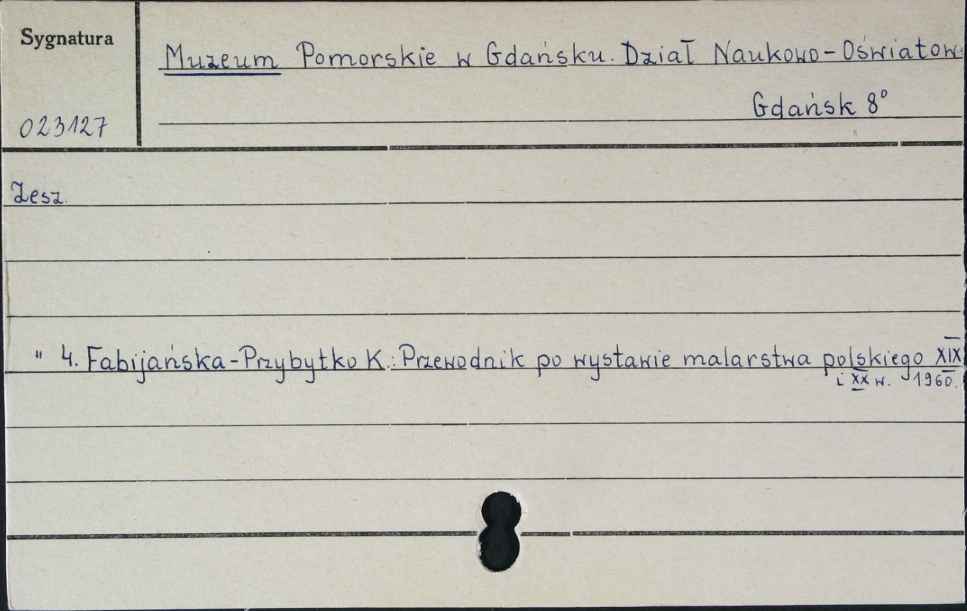 Sygnatura
Muzeum Pomorskie w Gdańsku. Dział Naukowo-Oświatow
Gdańsk 8°
023127
Zesz.
" 4. Fabijańska-Przybytko K.: Przewodnik po wystawie malarstwa polskiego XIX
i XX w. 1960.